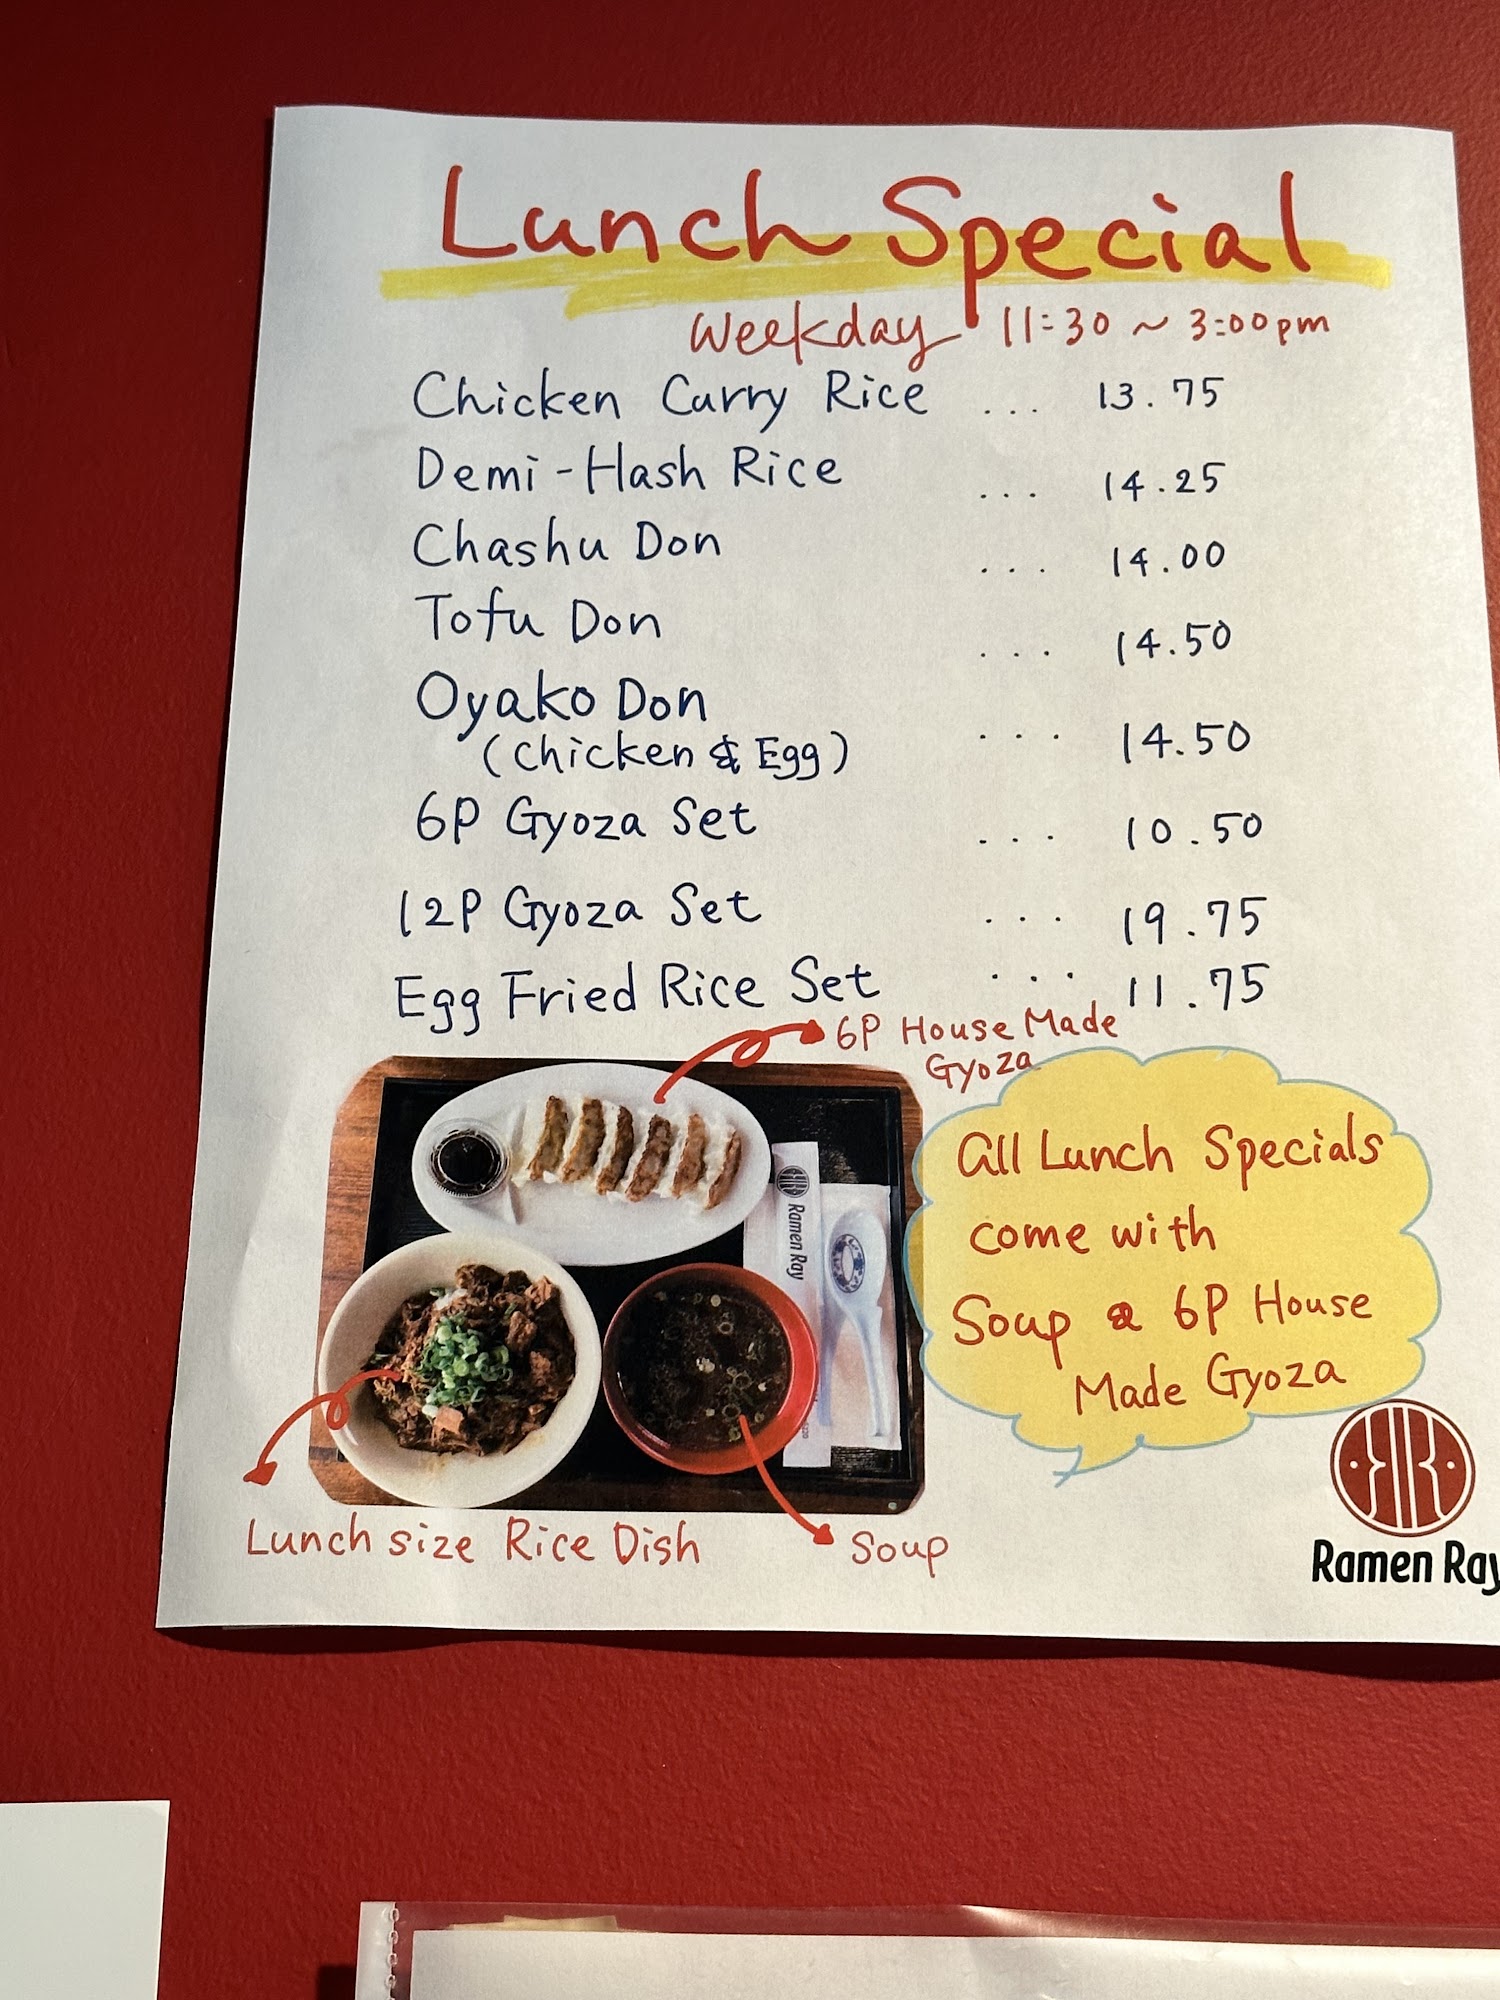 Lunch Special
Weekday 11:30 ~ 3:00pm
Chicken Curry Rice ... 13.75
Demi-Hash Rice ... 14.25
Chashu Don ... 14.00
Tofu Don ... 14.50
Oyako Don
(Chicken & Egg) ... 14.50
6P Gyoza Set ... 10.50
12P Gyoza Set ... 19.75
Egg Fried Rice Set ... 11.75
6P House Made
Gyoza
All Lunch Specials
come with
Soup & 6P House
Made Gyoza
Ramen Ray
Lunch size Rice Dish
Soup
Ramen Ray